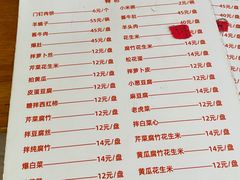 门钉肉饼 6元/个
羊蝎子 55元/锅
酱牛肉 45元/盘
爆肚
拌萝卜丝 12元/盘
芹菜花生米 12元/盘
拍黄瓜 12元/盘
皮蛋豆腐 12元/盘
糖拌西红柿 12元/盘
芹菜腐竹 12元/盘
拌豆腐丝 12元/盘
拌纯腐竹 14元/盘
爆白菜 14元/盘
小米粥 2元/碗
酱牛肚 45元/盘
羊头肉 40元/盘
花生米
腐竹花生米
松花蛋
拌萝卜皮 12元/盘
小葱豆腐 12元/盘
麻豆腐 12元/盘
老虎菜 12元/盘
拌白菜心 12元/盘
芹菜腐竹花生米 14元/盘
黄瓜腐竹花生米 14元/盘
黄瓜花生米 14元/盘